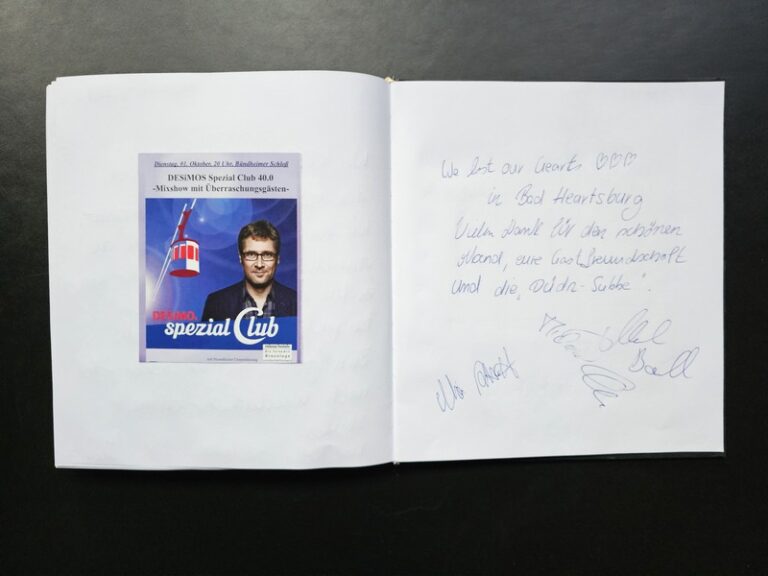 Dienstag, 01. Oktober, 20 Uhr, Bündheimer Schloß
DESiMOS Spezial Club 40.0
-Mixshow mit Überraschungsgästen-
DESiMOs
spezial Club
We lost our hearts ♡♡♡
in Bad Heartsburg
Vielen Dank für den schönen
Abend, eure Gastfreundschaft
und die